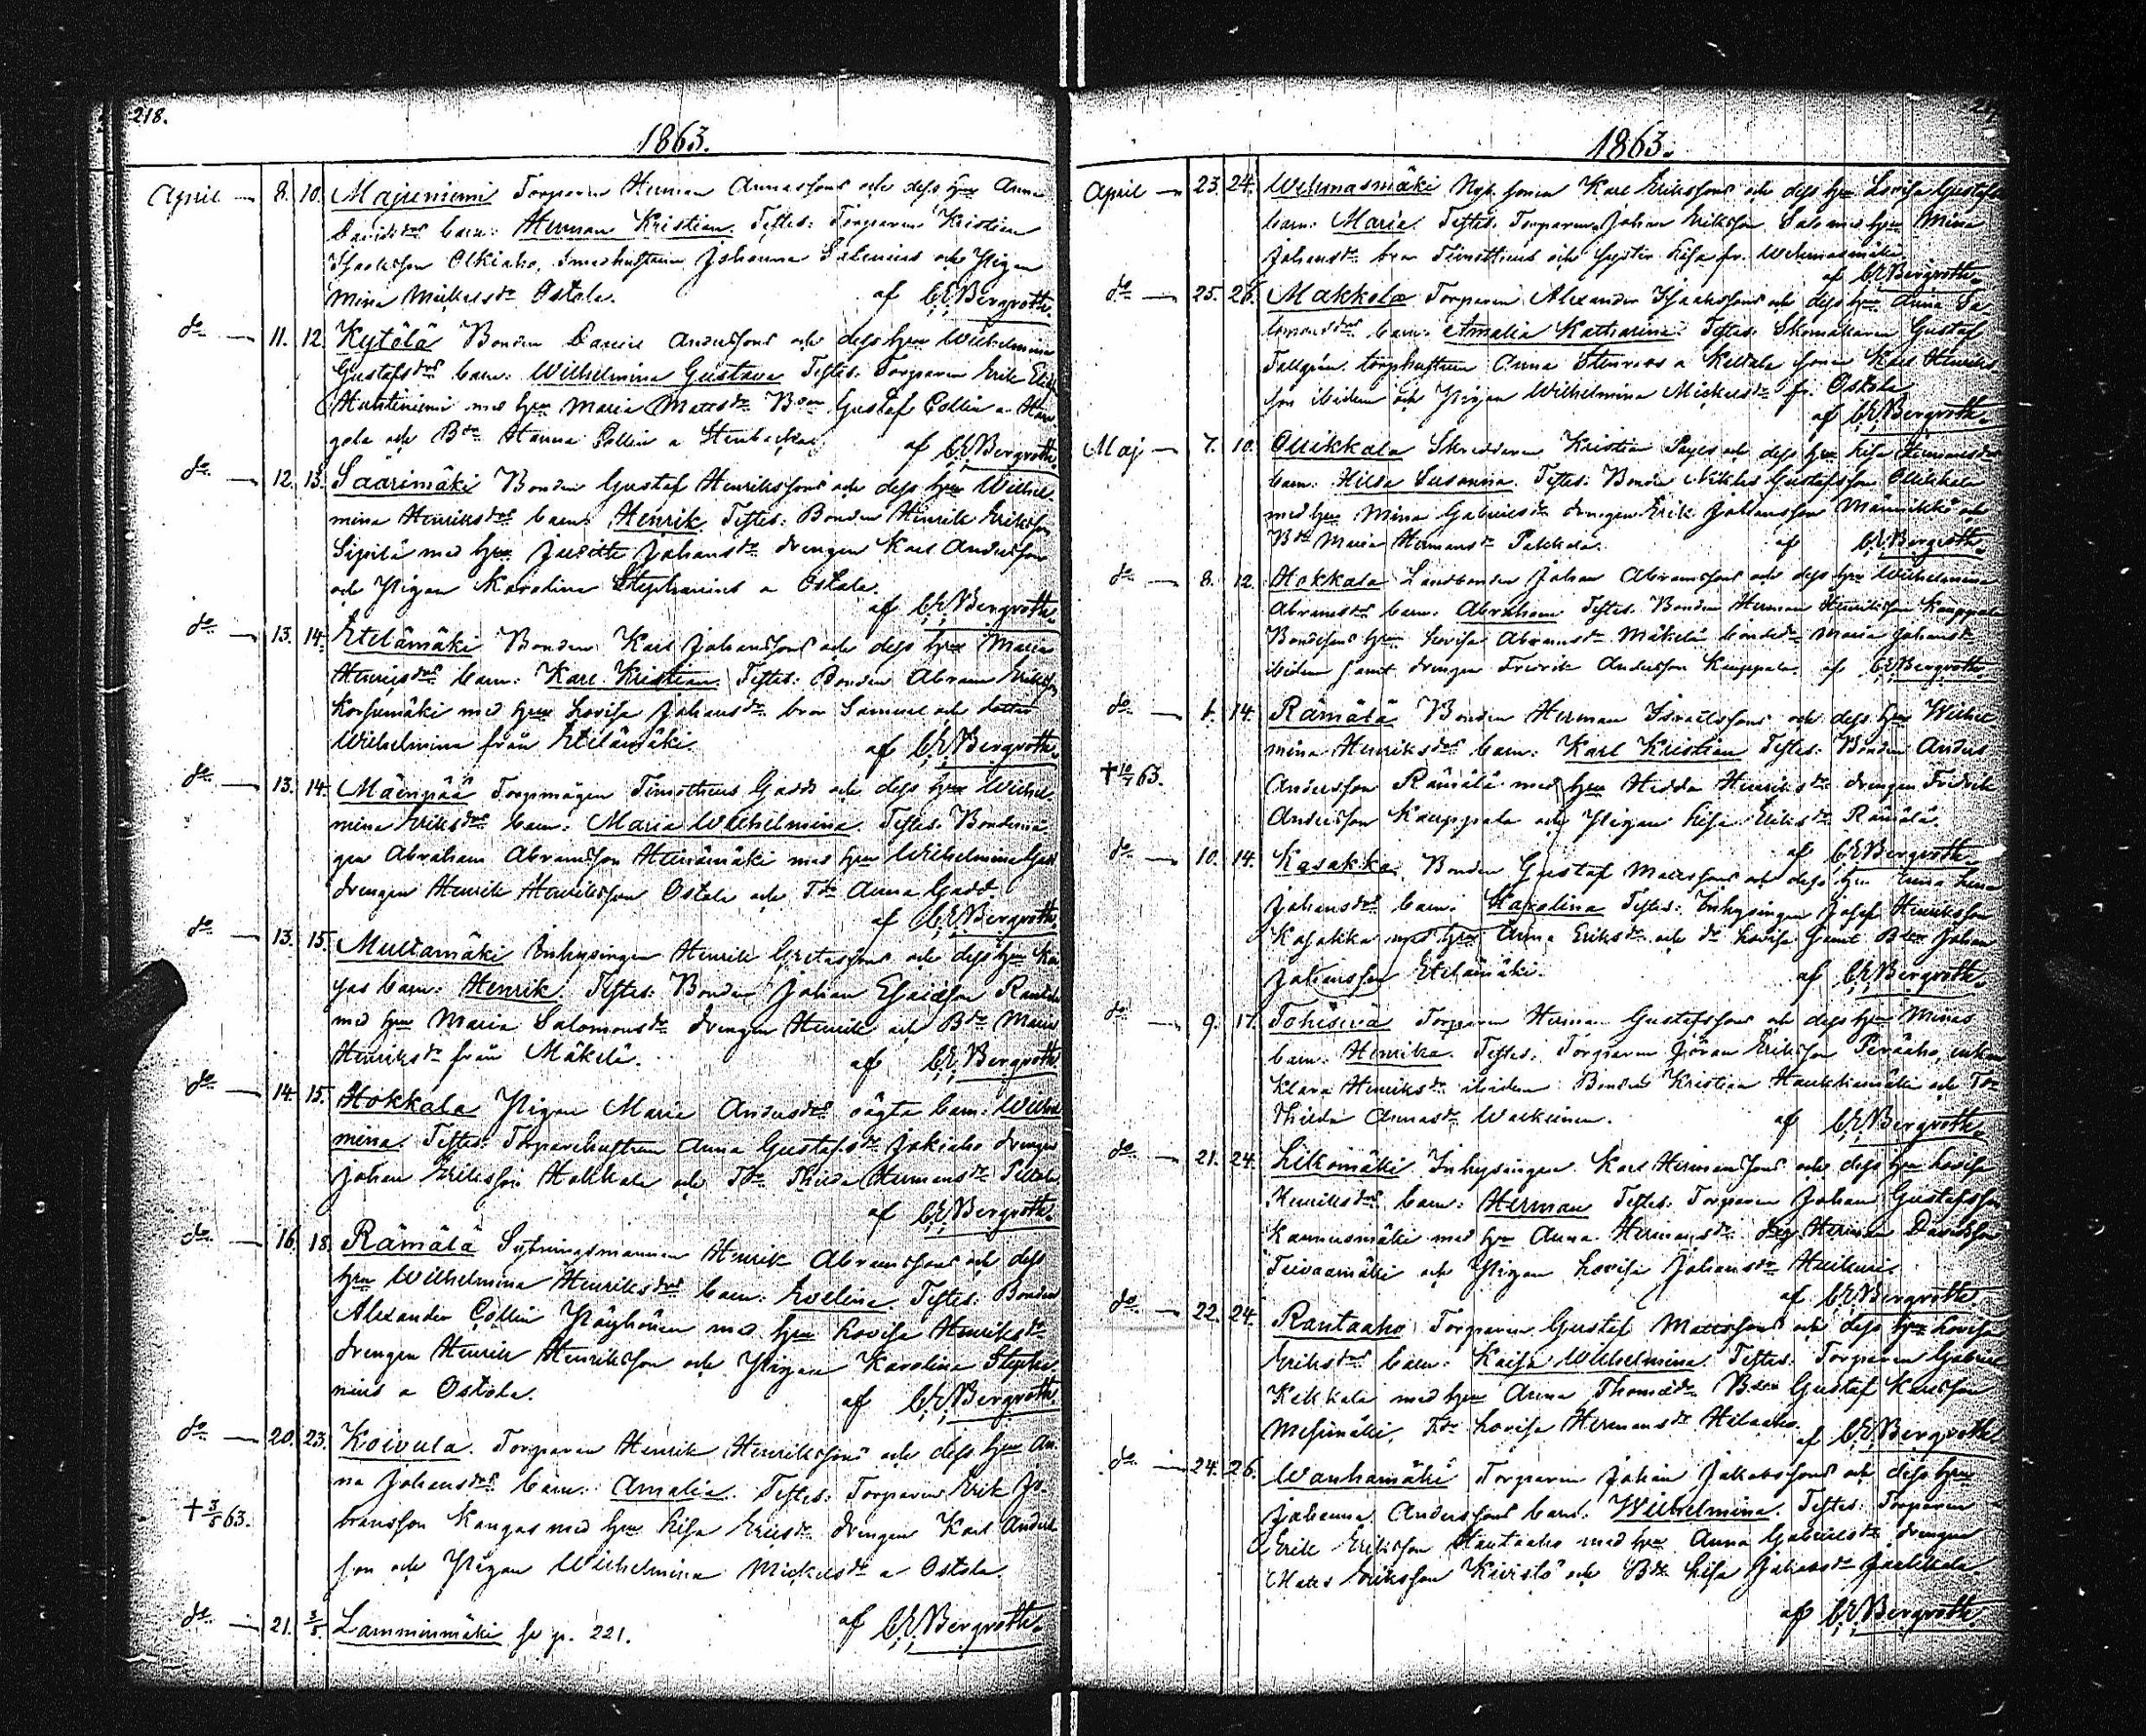 218.
1863.
April — 8. 10. Majuniemi Torparen Herman Annassons och dess hru Anna
Davidsdrs barn: Herman Kristian. Testes: Torparen Kristian
Isaaksson Olkiaho, Smedhustrun Johanna Salenius och Pigan
Mina Mickelsdr Ostola. af C.E. Bergroth.
do — 11. 12. Kytölä Bonden Daniel Anderssons och dess hru Wilhelmina
Gustafsdrs barn: Wilhelmina Gustava Testes: Torparen Erik
Huhtiniemi med hru Maria Mattsdr Gustaf Collin a
gola och Bdr Hanna Collin a af C.E. Bergroth.
do — 12. 13. Saarimäki Bonden Gustaf Henrikssons och dess hru Wilhel-
mina Henriksdrs barn: Henrik. Testes: Bonden Henrik Eriksson
Sipilä med hru Juditha Johansdr drengen Karl Andersson
och Pigan Karolina Stephanius a Ostola.
af C.E. Bergroth.
do — 13. 14. Etelämäki Bonden Karl Johanssons och dess hru Maria
Henriksdrs barn: Karl Kristian. Testes: Bonden Abram Eriksson
Korsumäki med hru Lovisa Johansdr. bror Samuel och dotter
Wilhelmina från Etelämäki. af C.E. Bergroth.
do — 13. 14. Mäenpää Torpmågen Timotheus Gadds och dess hru Wilhel-
mina Eriksdrs barn: Maria Wilhelmina. Testes: Bondemå-
gen Abraham Abramsson Heinämäki med hru Wilhelmina
drengen Henrik Henriksson Ostola och Tdr Anna Gadd.
af C.E. Bergroth.
do — 13. 15. Multamäki Inhysingen Henrik Gretassons och dess hru
sas barn: Henrik. Testes: Bonden Johan Esaiasson
med hru Maria Salomonsdr drengen Henrik och Bdr Maria
Henriksdr från Mäkelä. af C.E. Bergroth.
do — 14. 15. Hokkala Pigan Maria Andersdrs oägta barn: Wilhel
mina. Testes: Torparehustrun Anna Gustafsdr Jakiaho drengen
Johan Eriksson Hokkala och Tdr Thilda Hermansdr
af C.E. Bergroth.
do — 16. 18. Rämälä Sytningsmannen Henrik Abramssons och dess
hru Wilhelmina Henriksdrs barn: Evelina. Testes: Bonden
Alexander Collin Pöyhönen med hru Lovisa Henriksdr
drengen Henrik Henriksson och Pigan Karolina Stepha-
nius a Ostola. af C.E. Bergroth.
do — 20. 23. Koivula. Torparen Henrik Henrikssons och dess hru An-
na Johansdrs barn: Amalia. Testes: Torparen Erik Jo-
† 3/5 63. hansson Kangas med hru Lisa Ericsdr drengen Karl Anders
son och Pigan Wilhelmina Mickelsdr a Ostola.
af C.E. Bergroth.
do — 21. 3/5. Lamminmäki se p. 221.
1863.
April — 23. 24. Wehmasmäki Karl Erikssons och dess hru Lovisa Gustafs
barn: Maria. Testes: Torparen Johan Eriksson Salo med hru Mina
Johansdr. bror Timotheus och syster Lisa fr. Wehmasmäki.
af C.E. Bergroth.
do — 25. 26. Makkola Torparen Alexander Isaakssons och dess hru Anna Sa-
lomonsdrs barn: Amalia Katharina. Testes: Skomakaren Gustaf
Tallgren, torphustrun Anna Stenroos a Keltala sonen Karl Henriks-
son ibidem och Pigan Wilhelmina Mickelsdr fr. Ostola
af C.E. Bergroth.
Maj — 7. 10. Ollikkala Skreddaren Kristian och dess hru Lisa Hermansdrs
barn: Hilda Susanna. Testes: Bonden Niklas Gustafsson Ollikkala
med hru Mina Gabrielsdr drengen Erik Johansson Männikkö och
Bdr Maria Hermansdr Pakkala. af C.E. Bergroth.
do — 8. 12. Hokkala Landbonden Johan Abramssons och dess hru Wilhelmina
Abramsdrs barn: Abraham. Testes: Bonden Herman Henriksson Kauppala
Bondesons hru Lovisa Abramsdr Mäkelä bondedr Maria Johansdr
ibidem samt drengen Fredrik Andersson Kauppala. af C.E. Bergroth.
do — 1. 14. Rämälä Bonden Herman Israelssons och dess hru Wilhel
mina Henriksdrs barn: Karl Kristian Testes: Bonden Anders
† 10/7 63. Andersson Rämälä med hru Hedda Henriksdr drengen Fredrik
Andersson Kauppala och Pigan Lisa Eriksdr Rämälä.
af C.E. Bergroth.
do — 10. 14. Kasakka. Bonden Gustaf Mattssons och dess hru Lena
Johansdrs barn: Karolina Testes: Inhysingen Josef Henriksson
Kasakka med hru Anna Eriksdr och do Lovisa samt Johan
Johansson Etelämäki. af C.E. Bergroth.
do — 9. 17. Tohisevä Torparen Herman Gustafssons och dess hru Minas
barn: Henrika. Testes: Torparen Jöran Eriksson Peräaho, enkan
Klara Henriksdr ibidem Bonden Kristian Haukkamäki och Tdr
Thilda Annasdr Walkeinen. af C.E. Bergroth.
do — 21. 24. Likomäki Inhysingen Karl Hermanssons och dess hru Lovisa
Henriksdrs barn: Herman Testes: Torparen Johan Gustafsson
Kannusmäki med hru Anna Hermansdr Herman Davidsson
Teivaamäki och Pigan Lovisa Johansdr
af C.E. Bergroth.
do — 22. 24. Rantaaho Torparen Gustaf Mattssons och dess hru Lovisa
Eriksdrs barn: Kaisa Wilhelmina. Testes: Torparen Gabriel
Kekkala med hru Anna Thomædr Gustaf Karlsson
Mesimäki, Tdr Lovisa Hermansdr Hilaaho. af C.E. Bergroth.
do — 24. 26. Wanhamäki Torparen Johan Jakobssons och dess hru
Johanna Anderssons barn: Wilhelmina. Testes: Torparen
Erik Eriksson Hautaaho med hru Anna Gabrielsdr drengen
Mats Eriksson Kivistö och Bdr Lisa Johansdr Jaakkola.
af C.E. Bergroth.